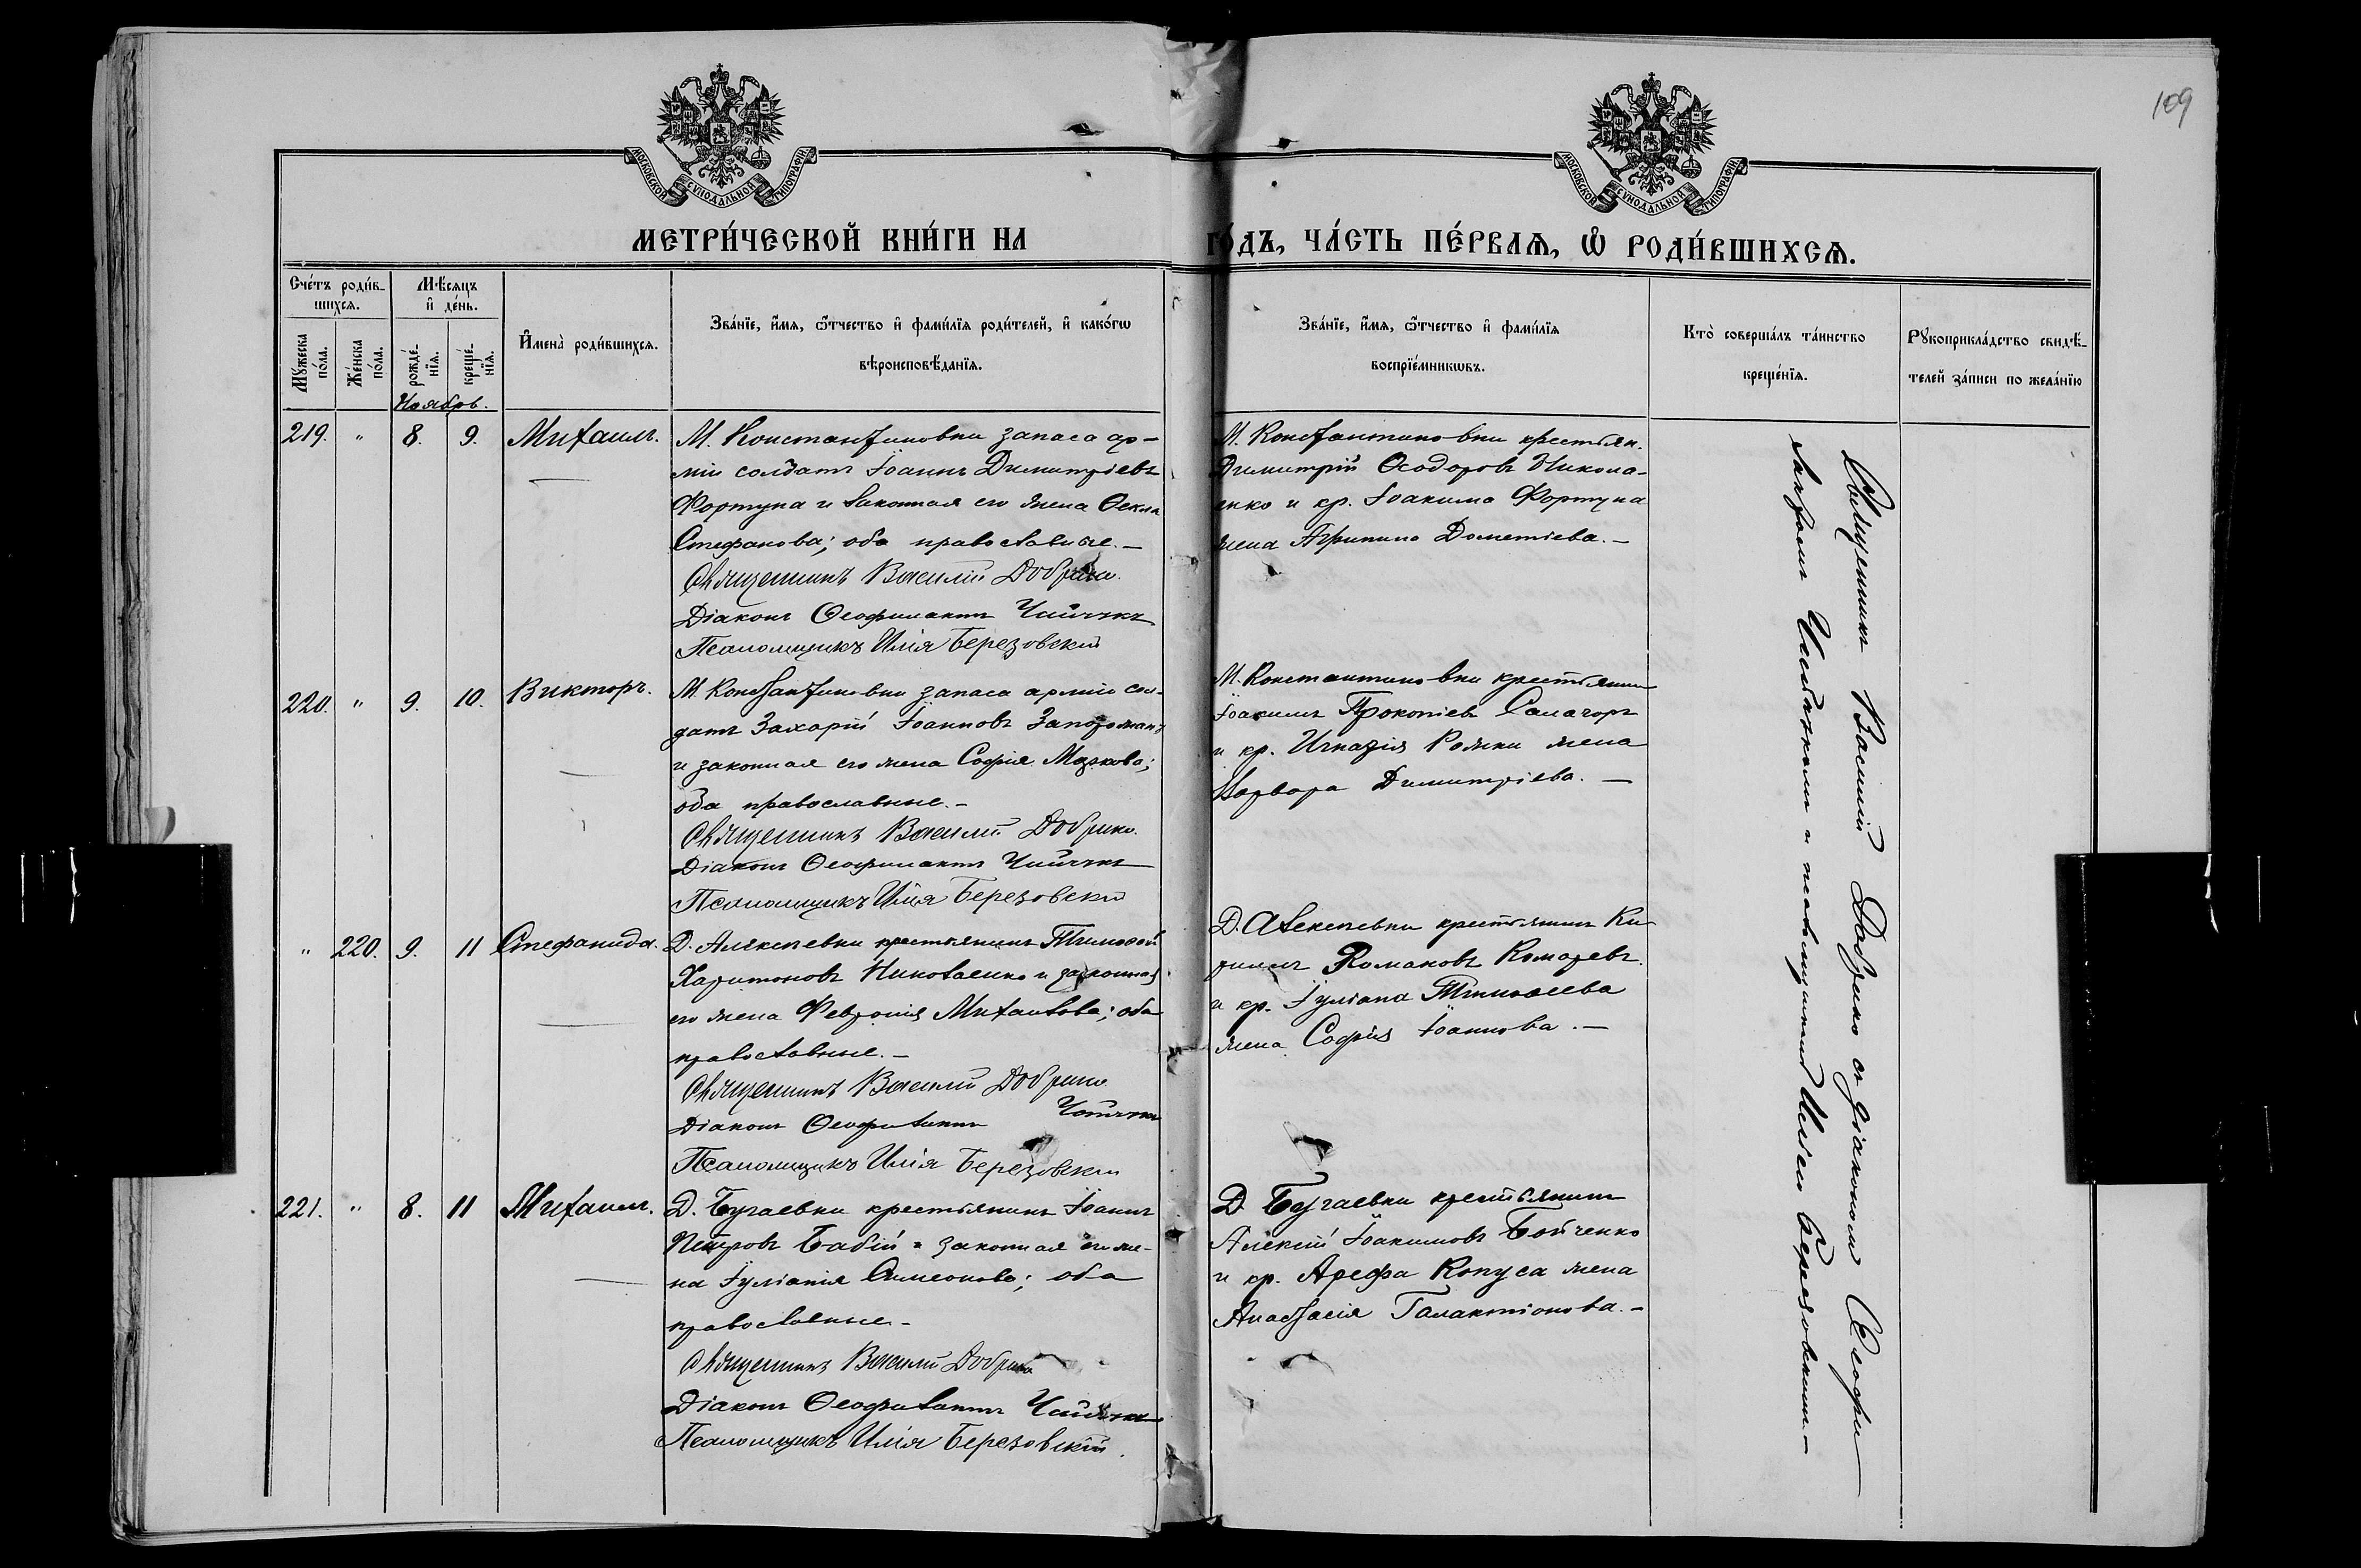 109
МОСКОВСКОЙ СУНОДАЛЬНОЙ ТИПОГРАФІИ
МОСКОВСКОЙ СУНОДАЛЬНОЙ ТИПОГРАФІИ
МЕТРИ́ЧЕСКОЙ КНИ́ГИ НА ГО́ДЪ, ЧА́СТЬ ПЕ́РВАѦ, Ѡ҆ РОДИ́ВШИХСѦ.
Сче́тъ роди́в-
шихсѧ.
Мѣ́сѧцъ
и҆ де́нь.
Мꙋ́жеска
по́ла.
Же́нска
по́ла.
рожде́-
нїѧ.
креще́-
нїѧ.
И҆мена̀ роди́вшихсѧ.
Зва́нїе, и҆́мѧ, ѻ҆́тчество и҆ фами́лїѧ роди́телей, и҆ како́гѡ
вѣроисповѣ́данїѧ.
Зва́нїе, и҆́мѧ, ѻ҆́тчество и҆ фами́лїѧ
воспрїе́мникѡвъ.
Кто̀ соверша́лъ та́инство
креще́нїѧ.
Рꙋкоприкла́дство свидѣ́-
телей за́писи по жела́нїю
Ноябрь.
219. " 8. 9. Михаилъ.
М. Константиновки запаса ар-
міи солдатъ Іоаннъ Димитріевъ
Фортуна и законная его жена Ѳекла
Стефанова; оба православные.—
Священникъ Василій Добрико.
Діаконъ Ѳеофилактъ
Псаломщикъ Илія Березовскій
М. Константиновки крестьян.
Димитрій Ѳеодоровъ Никола-
енко и кр. Іоакима Фортуна
жена Агрипина Дометіева.—
220. " 9. 10. Викторъ.
М. Константиновки запаса арміи сол-
датъ Захарій Іоанновъ
и законная его жена Софія Маркова;
оба православные.—
Священникъ Василій Добрико.
Діаконъ Ѳеофилактъ
Псаломщикъ Илія Березовскій
М. Константиновки крестьянинъ
Іоакимъ Прокопіевъ Саламоръ
и кр. Игнатія жена
Варвара Димитріева.—
" 220. 9. 11 Стефанида.
Д. Алексѣевки крестьянинъ Тимоѳей
Харитоновъ Николаенко и законная
его жена Февронія Михаилова; оба
православные.—
Священникъ Василій Добрико
Діаконъ Ѳеофилактъ
Псаломщикъ Илія Березовскій
Д. Алексѣевки крестьянинъ Ки-
риллъ Романовъ Комаревъ
и кр. Іуліана Тимоѳеева
жена Софія Іоаннова.—
221. " 8. 11 Михаилъ.
Д. Бугаевки крестьянинъ Іоаннъ
Петровъ Бабій и законная его же-
на Іуліанія Симеонова; оба
православные.—
Священникъ Василій Добрико
Діаконъ Ѳеофилактъ
Псаломщикъ Илія Березовскій.
Д. Бугаевки крестьянинъ
Алексій Іоакимовъ Бойченко
и кр. Арефа Копуса жена
Анастасія Галактіонова.—
Священникъ Василій Добрико съ діакономъ Ѳеофи-
лактомъ и псаломщикомъ Иліею Березовскимъ.—